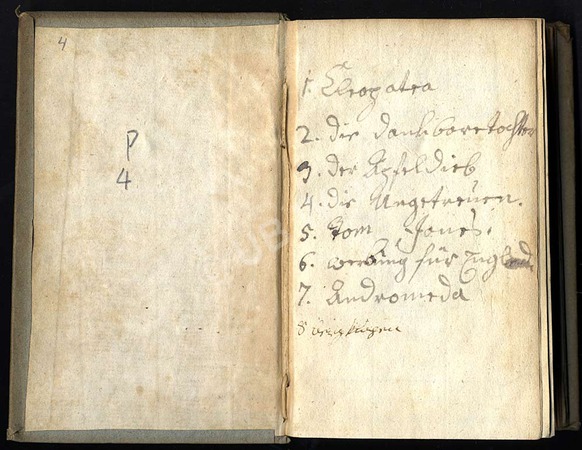 4
P
4
1. Cleopatra
2. die dankbare tochter
3. der Apfeldieb
4. die Ungetreuen.
5. Tom Jones.
6. werbung für England
7. Andromeda
8